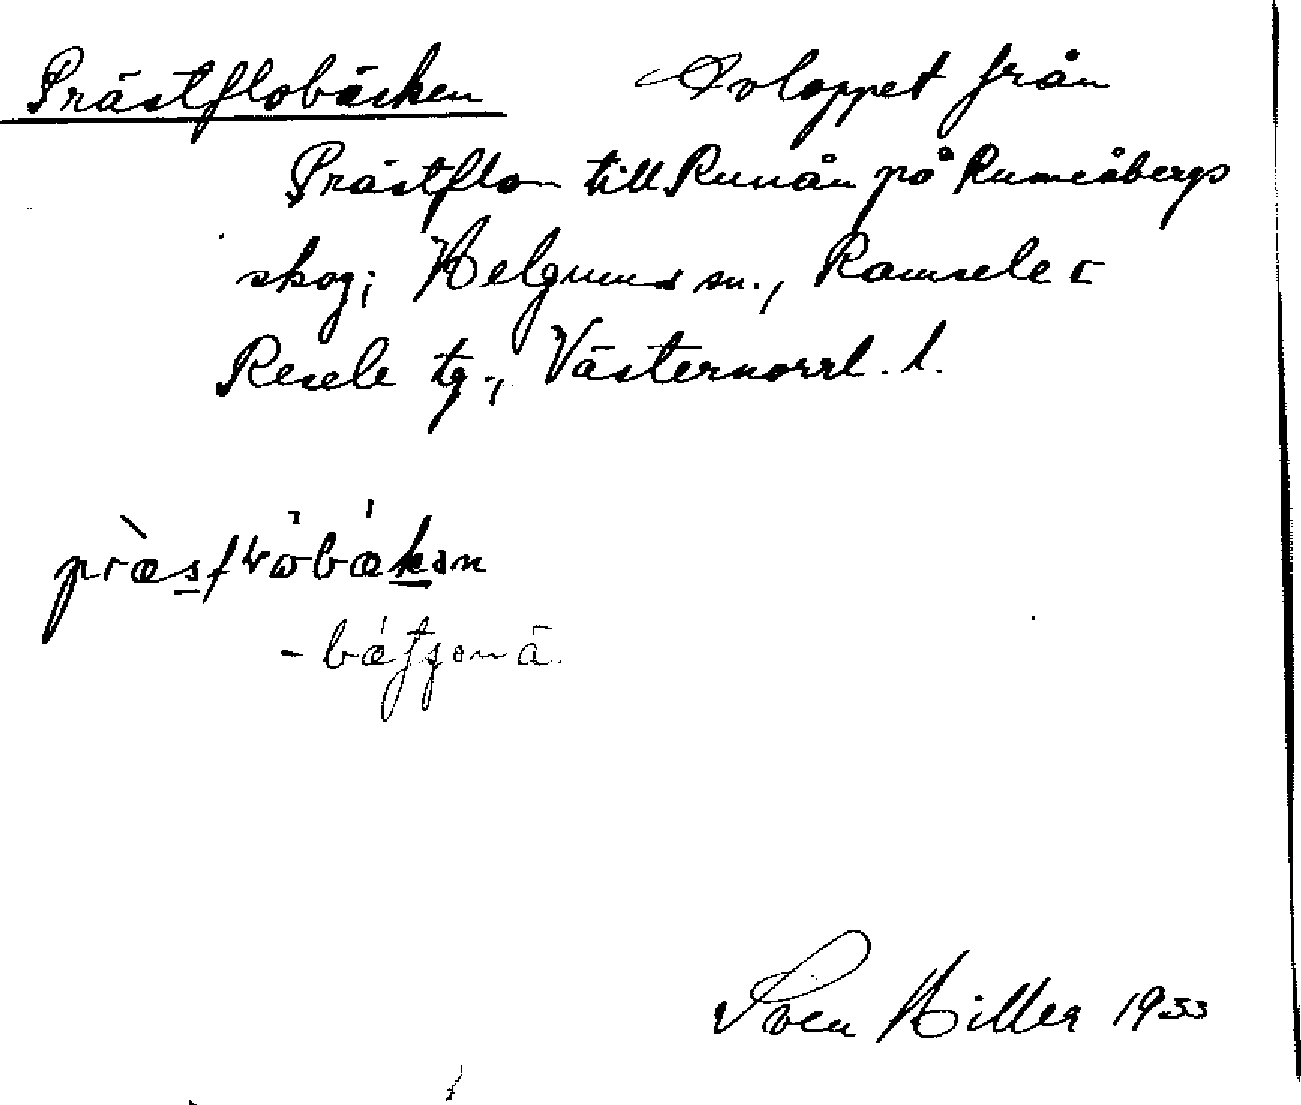 Prästflobäcken Avloppet från
Prästflon till Runån på Rumeåbergs
skog; Helgums sn., Ramsele o
Resele tg., Västernorrl. l.
Sven Hiller 1933